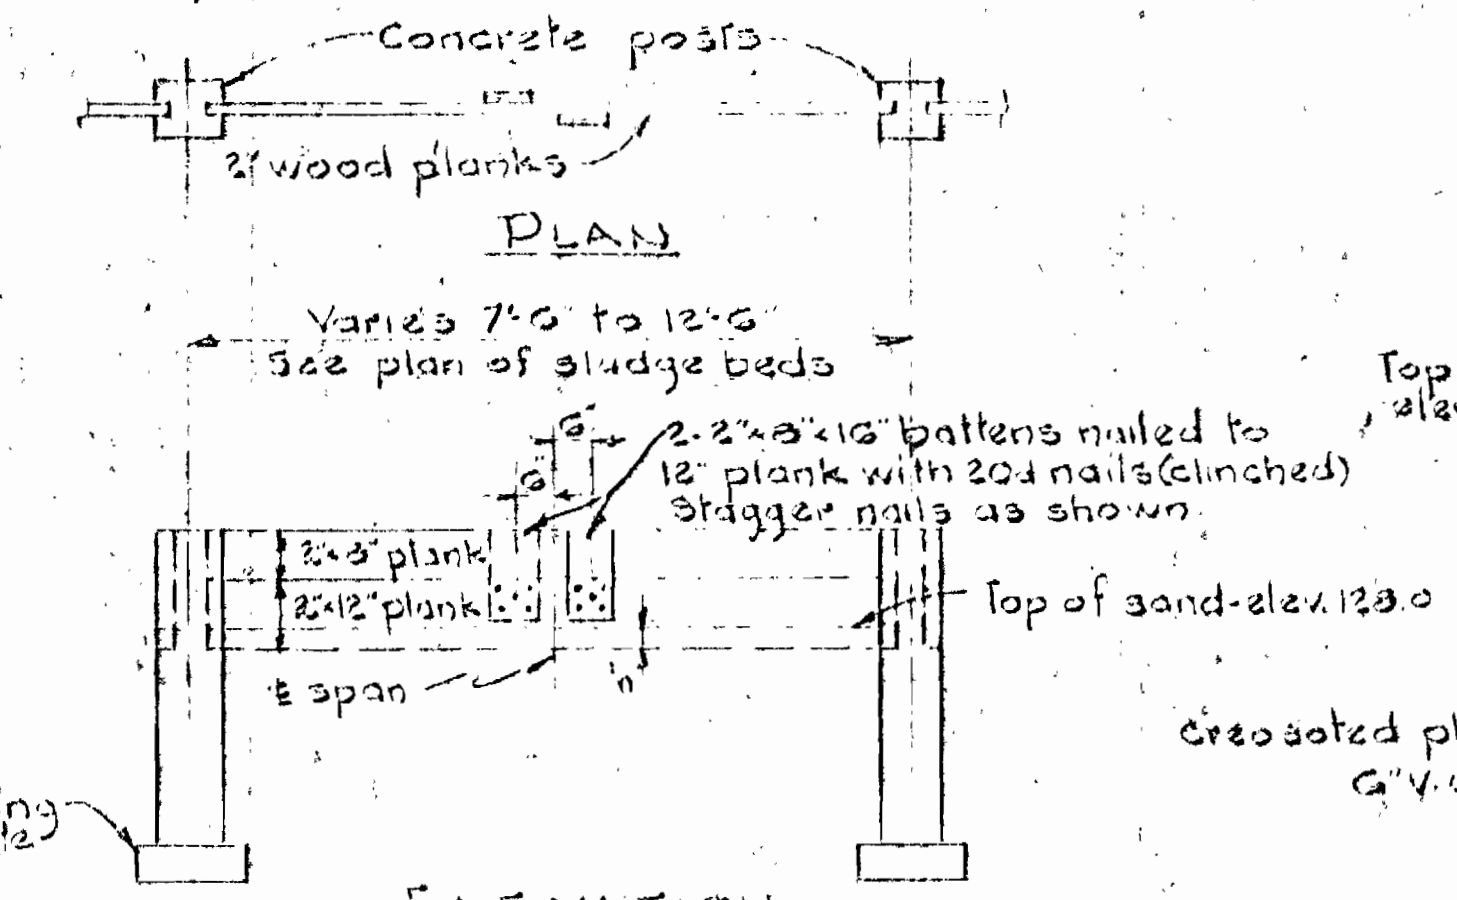 Concrete posts
2" wood planks
PLAN
Varies 7'-6" to 12'-6"
See plan of sludge beds
6"
6"
2-2"x8"x16" battens nailed to
12" plank with 20d nails (clinched)
Stagger nails as shown
Top
2"x8" plank
2"x12" plank
Top of sand-elev. 128.0
℄ span
Creosoted
6"
ELEVATION